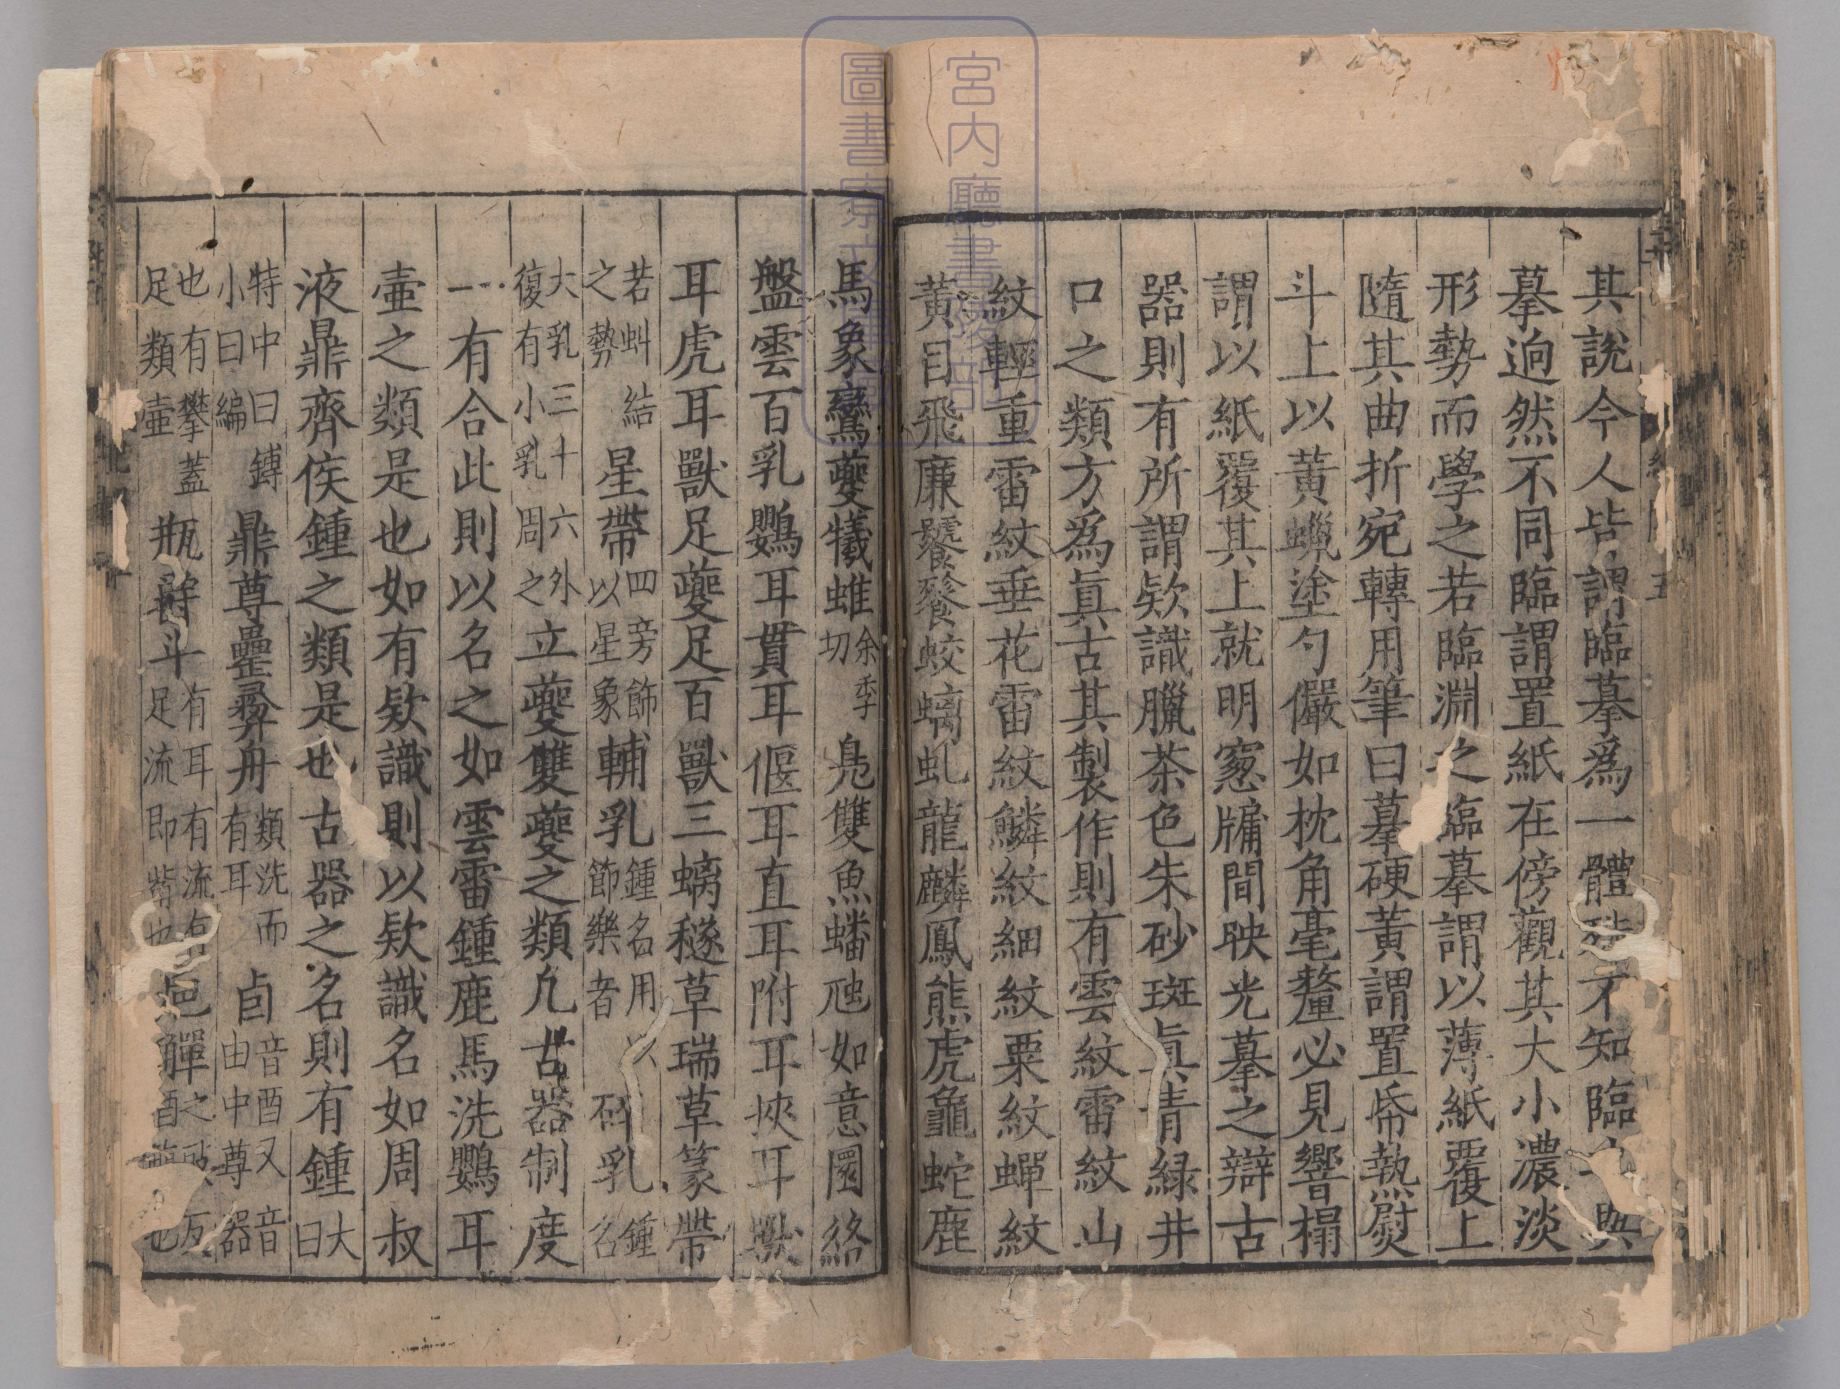 其說今人皆謂臨摹爲一體殊不知臨之與
摹逈然不同臨謂置紙在傍觀其大小濃淡
形勢而學之若臨淵之臨摹謂以薄紙覆上
隨其曲折宛轉用筆曰摹硬黃謂置帋熱熨
斗上以黃蠟塗勻儼如枕角毫釐必見響榻
謂以紙覆其上就明窻牖間映光摹之辯古
器則有所謂欵識臘茶色朱砂斑眞青緑井
口之類方爲眞古其製作則有雲紋雷紋山
紋輕重雷紋垂花雷紋鱗紋細紋粟紋蟬紋
黃目飛廉饕餮蛟螭虬龍麟鳳熊虎龜蛇鹿
馬象鸞夔犧蜼余季切鳧雙魚蟠虺如意圜絡
盤雲百乳鸚耳貫耳偃耳直耳附耳挾耳獸
耳虎耳獸足夔足百獸三螭穟草瑞草篆帶
若蚪結之勢星帶四旁飾以星象輔乳鍾名用以節樂者碎乳鍾名
大乳三十六外復有小乳周之立夔雙夔之類凢古器制度
一有合此則以名之如雲雷鍾鹿馬洗鸚耳
壷之類是也如有欵識則以欵識名如周叔
液鼎齊侯鍾之類是也古器之名則有鍾大曰
特中曰鎛小曰編鼎尊罍彛舟類洗而有耳卣音酉又音由中尊器
也有攀蓋足類壷瓶爵斗有耳有流有足流即觜也巵觶
宮内廳書陵部
圖書寮文庫